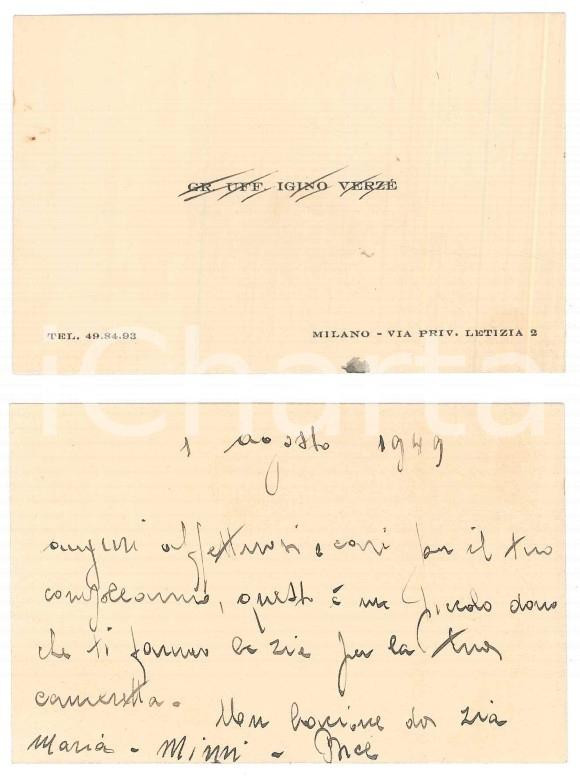 GR. UFF. IGINO VERZÉ
TEL. 49.84.93
MILANO - VIA PRIV. LETIZIA 2
iCharta
1 agosto 1949
auguri affettuosi e cari per il tuo
compleanno, questo è un piccolo dono
che ti fanno le zie per la tua
cameretta.
Un bacione da zia
Maria - Mimi -